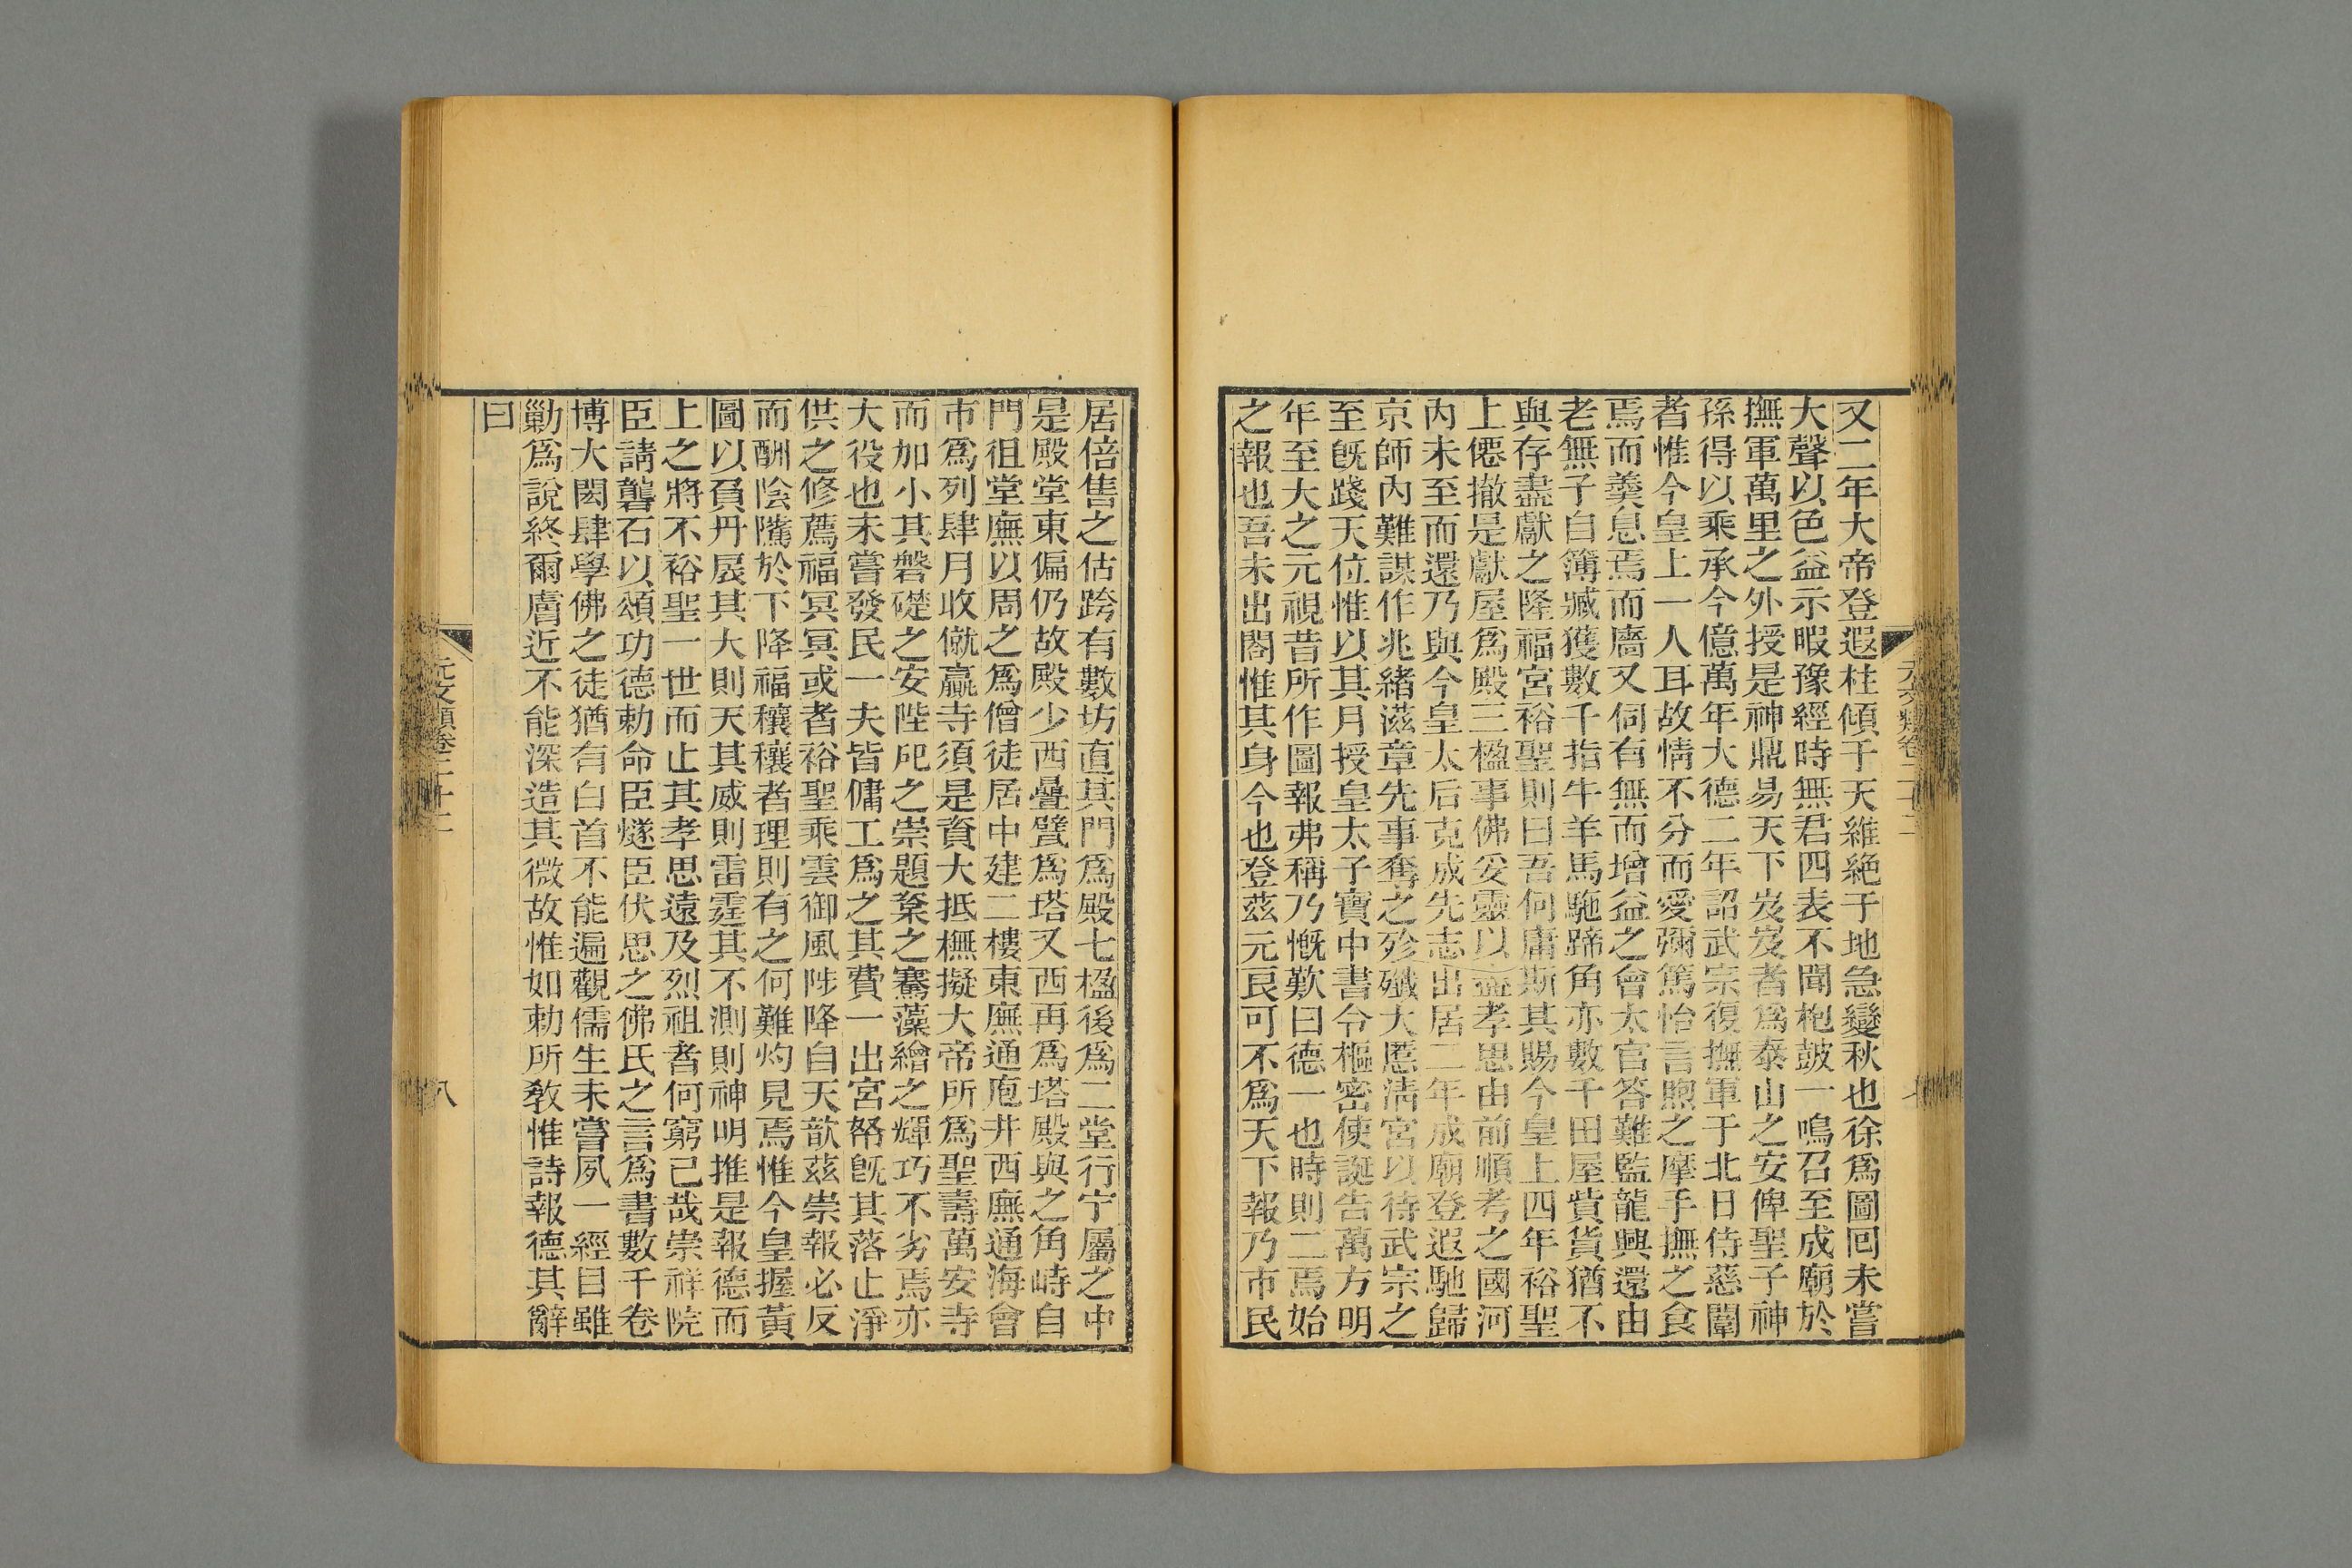 又二年大帝登遐柱傾于天維絶于地急變秋也徐爲圖囘未嘗
大聲以色益示暇豫經時無君四表不聞枹皷一鳴召至成廟於
撫軍萬里之外授是神鼎易天下岌岌者爲泰山之安俾聖子神
孫得以乘承今億萬年大德二年詔武宗復撫軍于北日侍慈闈
者惟今皇上一人耳故情不分而愛彌篤怡言煦之摩手撫之食
焉而羮息焉而牆又伺有無而增益之會太官答難監龍興還由
老無子自簿臧獲數千指牛羊馬駞蹄角亦數千田屋貲貨猶不
與存盡獻之隆福宮裕聖則曰吾何庸斯其賜今皇上四年裕聖
上僊撤是獻屋爲殿三楹事佛妥靈以益孝思由前順考之國河
內未至而還乃與今皇太后克成先志出居二年成廟登遐馳歸
京師內難謀作兆緖滋章先事奪之殄殲大慝淸宮以待武宗之
至旣踐天位惟以其月授皇太子寶中書令樞密使誕告萬方明
年至大之元視昔所作圖報弗稱乃慨歎曰德一也時則二焉始
之報也吾未出閤惟其身今也登茲元良可不爲天下報乃市民
元文類卷二十二
居倍售之估跨有數坊直其門爲殿七楹後爲二堂行宁屬之中
是殿堂東偏仍故殿少西疊甓爲塔又西再爲塔殿與之角峙自
門徂堂廡以周之爲僧徒居中建二樓東廡通庖井西廡通海會
市爲列肆月收僦贏寺須是資大抵橅擬大帝所爲聖壽萬安寺
而加小其磐礎之安陛戺之崇題楶之騫藻繪之輝巧不劣焉亦
大役也未嘗發民一夫皆傭工爲之其費一出宮帑旣其落止淨
供之修薦福冥冥或者裕聖乘雲御風陟降自天歆茲崇報必反
而酬陰隲於下降福穰穰者理則有之何難灼見焉惟今皇握黃
圖以負丹扆其大則天其威則雷霆其不測則神明推是報德而
上之將不裕聖一世而止其孝思遠及烈祖者何窮己哉崇祥院
臣請礱石以頌功德勅命臣燧臣伏思之佛氏之言爲書數千卷
博大閎肆學佛之徒猶有白首不能遍觀儒生未嘗夙一經目雖
勦爲說終爾膚近不能深造其微故惟如勅所敎惟詩報德其辭
曰
元文類卷二十二
八